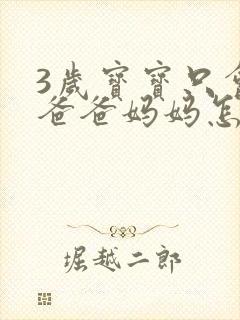 3歲寶寶只會
爸爸妈妈怎
堀越二郎